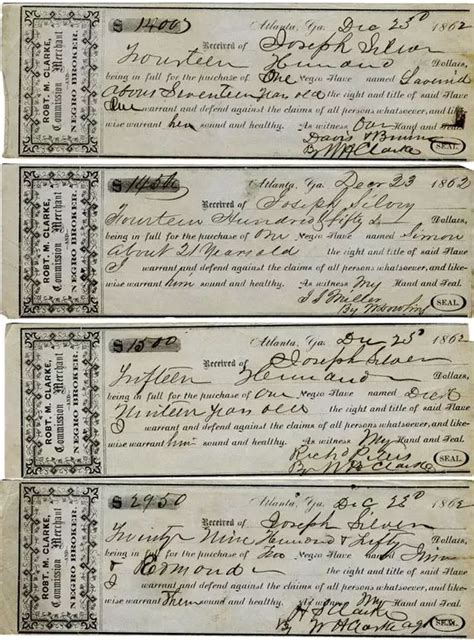 ROBT. M. CLARKE,
Commission Merchant
—AND—
NEGRO BROKER.
$ 1400
Atlanta, Ga. Dec 23d 1862
Received of Joseph Silver
Fourteen Hund Dollars,
being in full for the purchase of One Negro Slave named
About Seventeen Years old the right and title of said Slave
warrant and defend against the claims of all persons whatsoever, and like-
wise warrant her sound and healthy. As witness Our Hand and Seal.
By W H Clarke SEAL.
ROBT. M. CLARKE,
Commission Merchant
—AND—
NEGRO BROKER.
$ 1450
Atlanta, Ga. 23 1862
Received of Joseph
Fourteen Hundred fifty Dollars,
being in full for the purchase of One Negro Slave named Simon
About 21 Years old the right and title of said Slave
I warrant and defend against the claims of all persons whatsoever, and like-
wise warrant him sound and healthy. As witness My Hand and Seal.
Miller
By SEAL.
ROBT. M. CLARKE,
Commission Merchant
—AND—
NEGRO BROKER.
$ 1500
Atlanta, Ga. 1862
Received of Joseph Silver
Fifteen Hund Dollars,
being in full for the purchase of One Negro Slave named Dick
years old the right and title of said Slave
I warrant and defend against the claims of all persons whatsoever, and like-
wise warrant him sound and healthy. As witness My Hand and Seal.
Richd
By Clarke SEAL.
ROBT. M. CLARKE,
Commission Merchant
—AND—
NEGRO BROKER.
$ 2950
Atlanta, Ga. Dec 22d 1862
Received of Joseph Silver
Twenty Nine Hund & Fifty Dollars,
being in full for the purchase of Two Negro Slave named Jim
& the right and title of said Slave
I warrant and defend against the claims of all persons whatsoever, and like-
wise warrant Them sound and healthy. As witness My Hand and Seal.
Clarke
By W H Clarke agt SEAL.